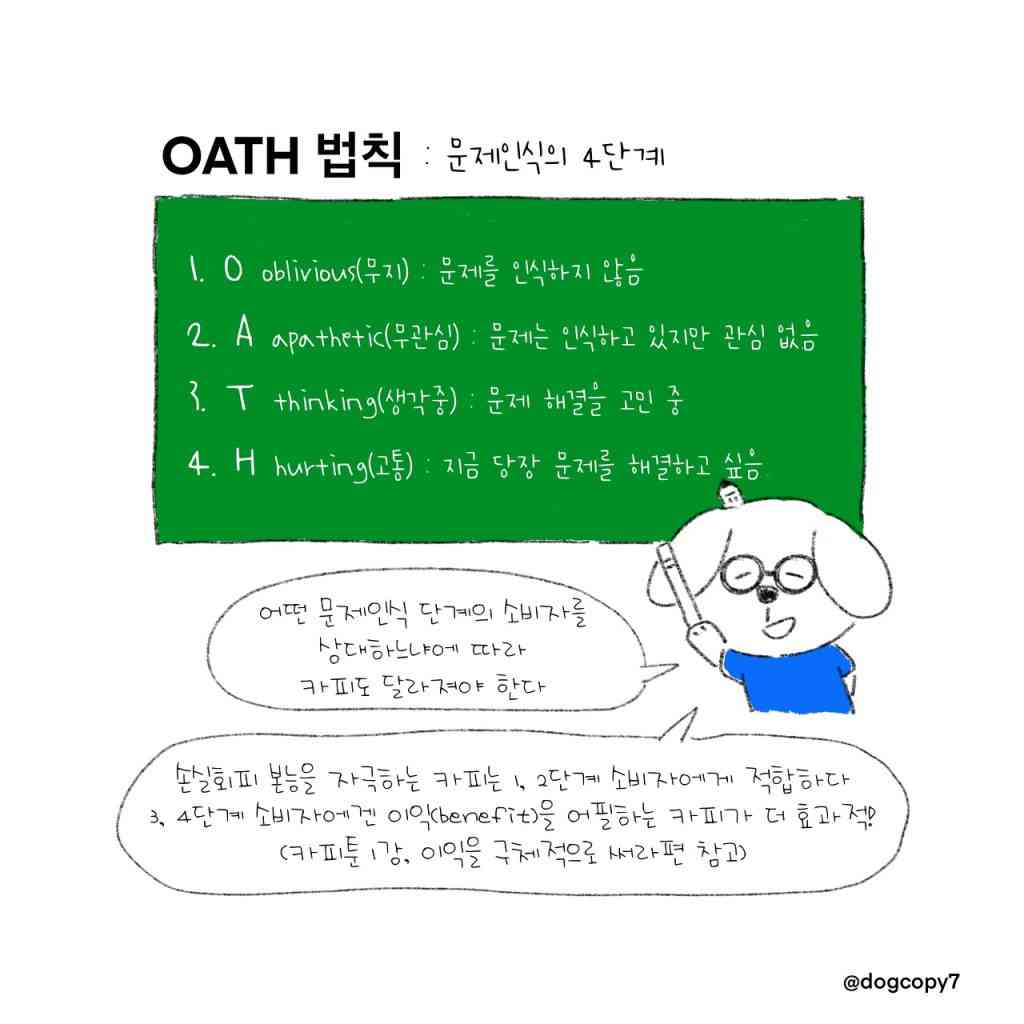 OATH 법칙 : 문제인식의 4단계
1. O oblivious(무지) : 문제를 인식하지 않음
2. A apathetic(무관심) : 문제는 인식하고 있지만 관심 없음
3. T thinking(생각중) : 문제 해결을 고민 중
4. H hurting(고통) : 지금 당장 문제를 해결하고 싶음
어떤 문제인식 단계의 소비자를
상대하느냐에 따라
카피도 달라져야 한다
손실회피 본능을 자극하는 카피는 1, 2단계 소비자에게 적합하다
3, 4단계 소비자에겐 이익(benefit)을 어필하는 카피가 더 효과적!
(카피툰 1강, 이익을 구체적으로 써라편 참고)
@dogcopy7